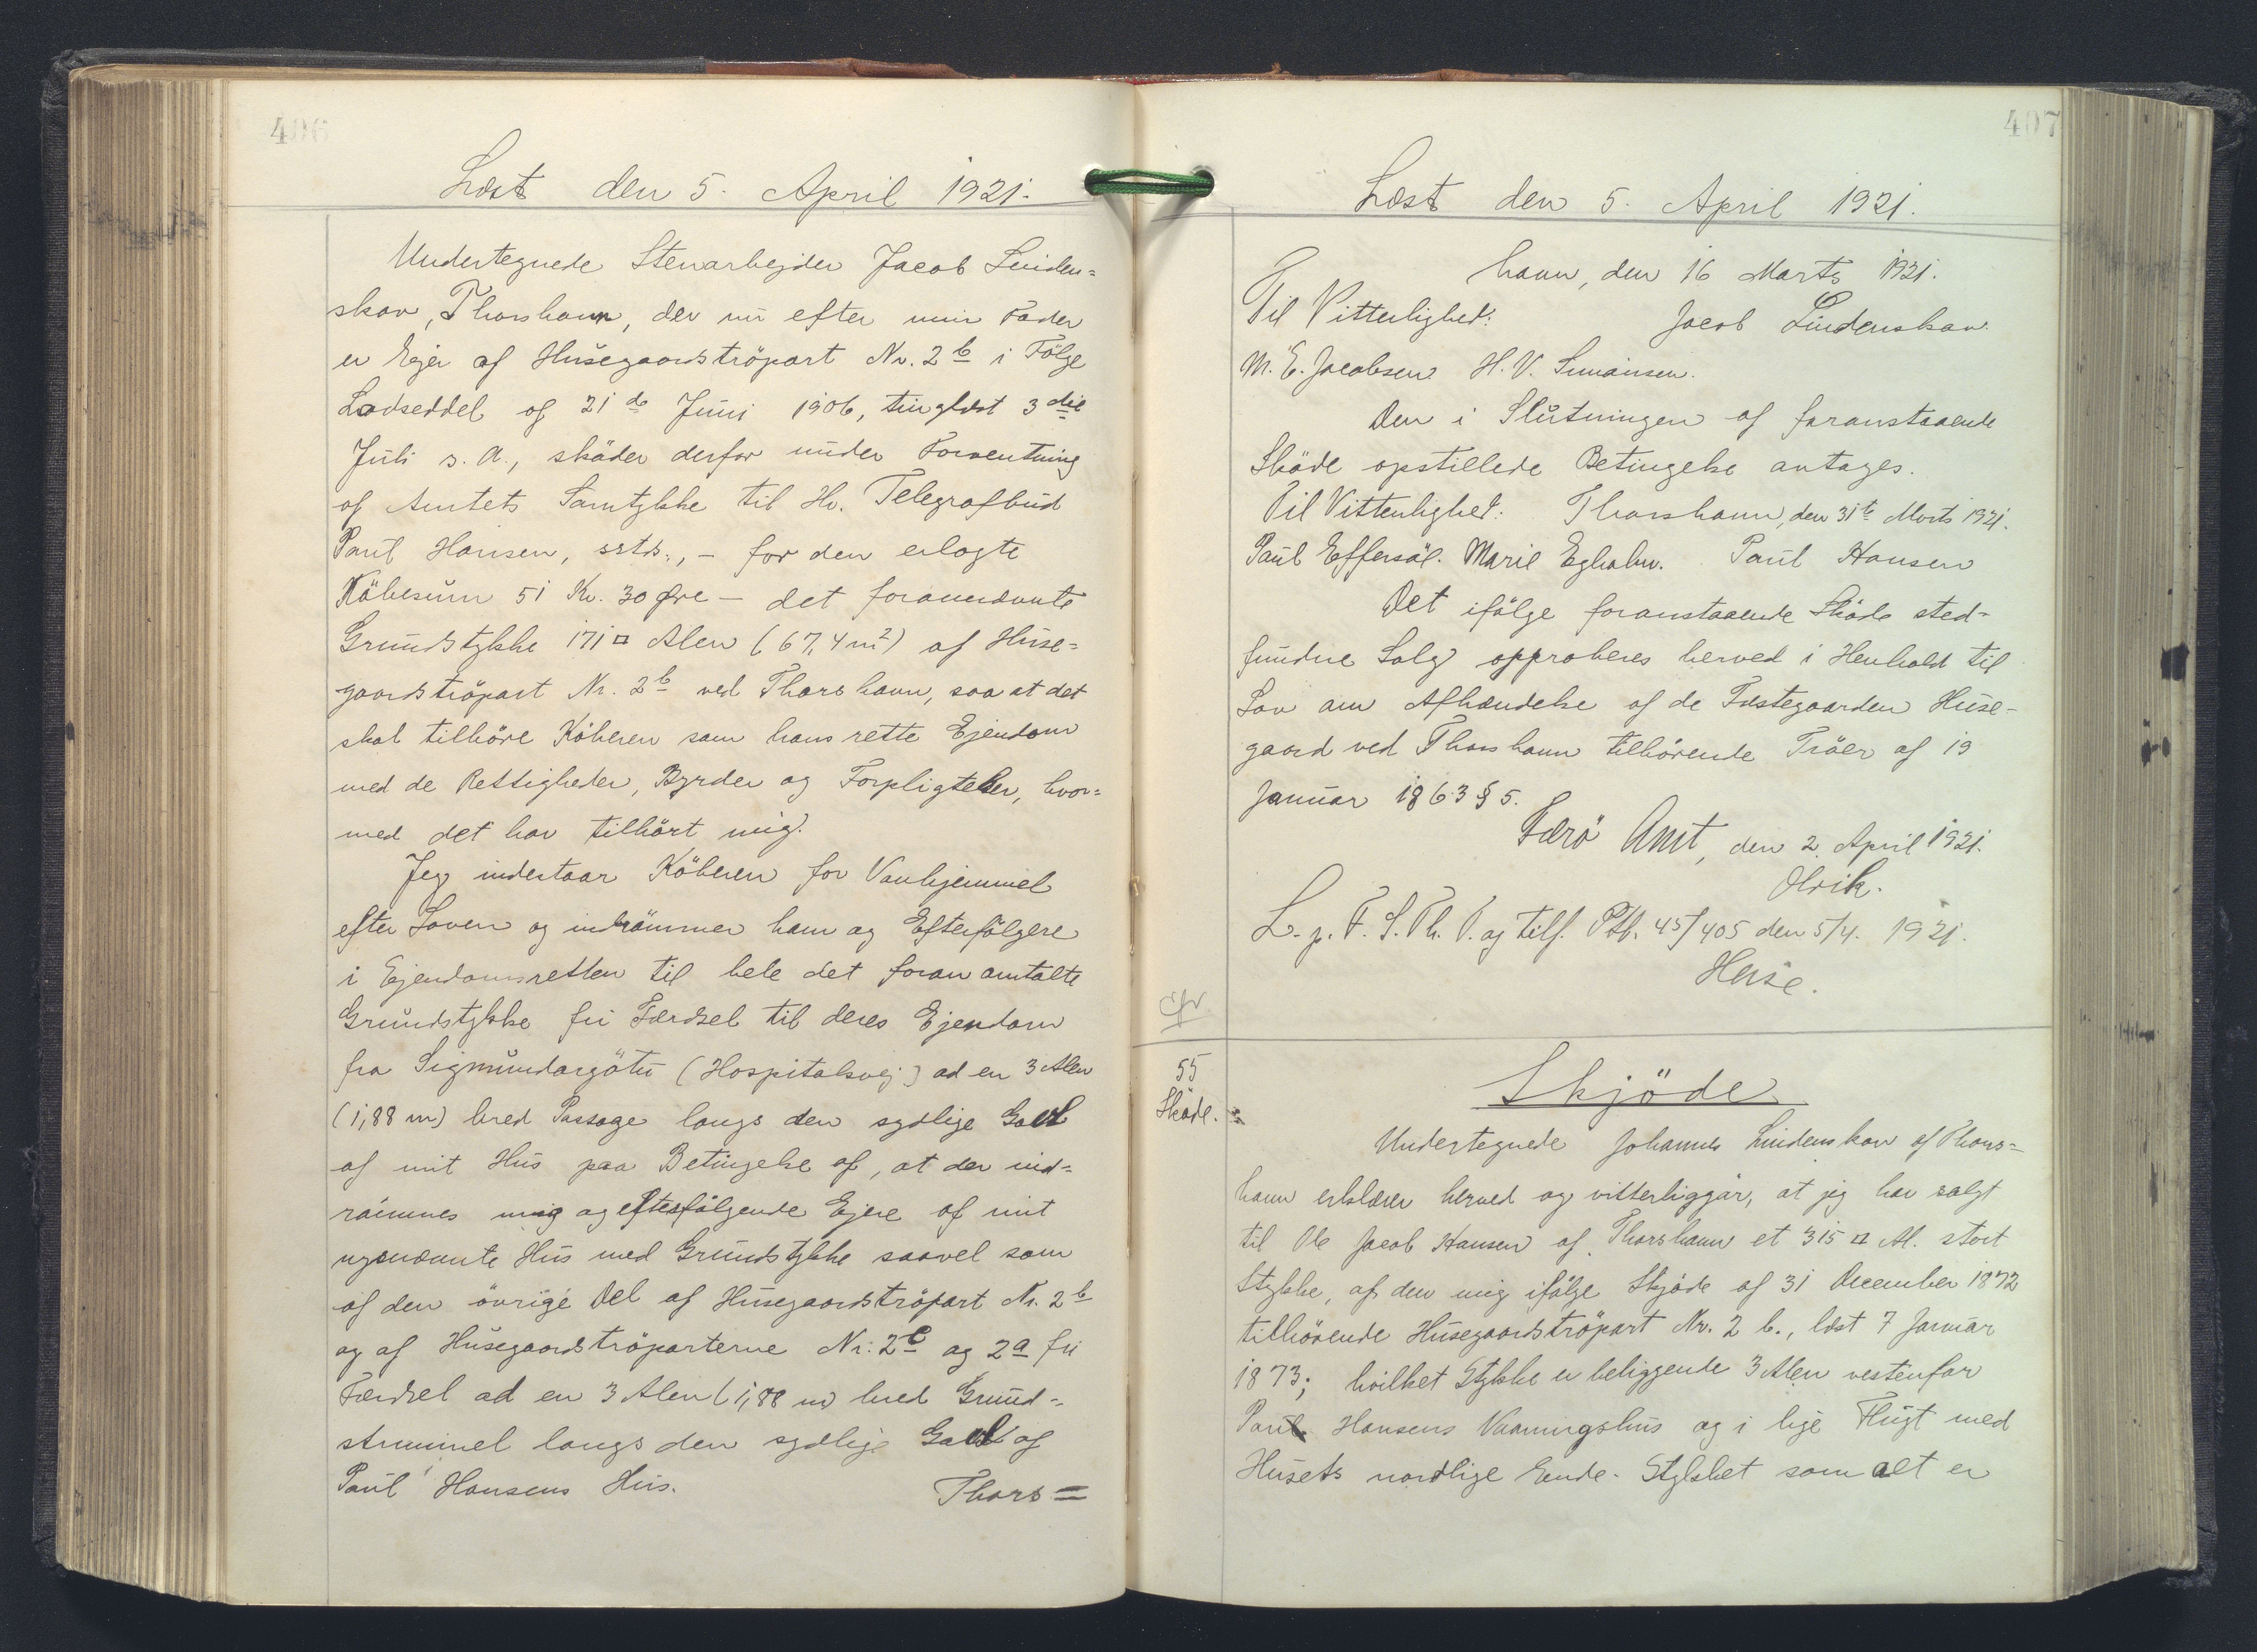 406
Læst den 5. April 1921.
Undertegnede Stenarbejder Jacob Linden=
skov, Thorshavn, der nu efter min Fader
er Ejer af Husegaardströpart Nr. 2 b i Fölge
Lodseddel af 21 de Juni 1906, tinglæst 3 die
Juli s. A., sköder derfor under Forventning
af Amtets Samtykke til Hr. Telegrafbud
Paul Hansen, sstds., – for den erlagte
Köbesum 51 Kr. 30 Øre – det forannævnte
Grundstykke 171 □ Alen (67,4 m²) af Huse=
gaardströpart Nr. 2 b ved Thorshavn, saa at det
skal tilhöre Köberen som hans rette Ejendom
med de Rettigheder, Byrder og Forpligtelser, hvor=
med det har tilhört mig.
Jeg indestaar Köberen for Vanhjemmel
efter Loven og indrömmer ham og Efterfölgere
i Ejendomsretten til hele det foran omtalte
Grundstykke fri Færdsel til deres Ejendom
fra Sigmundargötu (Hospitalsvej) ad en 3 Alen
(1,88 m) bred Passage langs den sydlige Gavl
af mit Hus paa Betingelse af, at der ind=
römmes mig og efterfölgende Ejere af mit
nysnævnte Hus med Grundstykke saavel som
af den övrige Del af Husegaardströpart Nr. 2 b
og af Husegaardströparterne Nr. 2 c og 2 a fri
Færdsel ad en 3 Alen (1,88 m) bred Grund=
strimmel langs den sydlige Gavl af
Paul Hansens Hus.
Thors=
407
Læst den 5. April 1921.
havn, den 16 Marts 1921.
Til Vitterlighed: Jacob Lindenskov.
M. E. Jacobsen. H. V. Simonsen.
Den i Slutningen af foranstaaende
Sköde opstillede Betingelse antages.
Til Vitterlighed: Thorshavn, den 31 te Marts 1921.
Paul Effersöe. Marie Egholm. Paul Hansen
Det ifölge foranstaaende Sköde sted=
fundne Salg approberes herved i Henhold til
Lov om Afhændelse af de Fæstegaarden Huse=
gaard ved Thorshavn tilhörende Tröer af 19
Januar 1863 § 5.
Færö Amt, den 2. April 1921.
Olrik.
L. p. F. S. Th. P. og tilf. Ptb. 45/405 den 5/4. 1921.
Heise.
cfr.
55
Sköde.
Skjöde
Undertegnede Johannes Lindenskov af Thors=
havn erklærer herved og vitterliggör, at jeg har solgt
til Ole Jacob Hansen af Thorshavn et 315 □ Al. stort
Stykke, af den mig ifölge Skjöde af 31 December 1872
tilhörende Husegaardströpart Nr. 2 b., læst 7 Januar
1873; hvilket Stykke er beliggende 3 Alen vestenfor
Paul Hansens Vaaningshus og i lige Flugt med
Husets nordlige Ende. Stykket som alt er